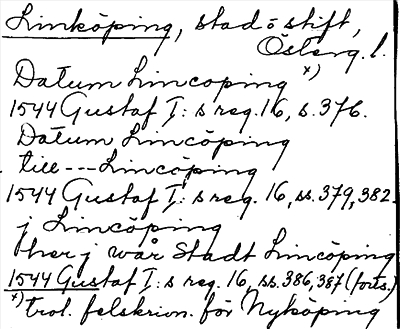 Linköping, stad o stift,
Österg. l.
Datum Lincoping x)
1544 Gustaf I: s reg. 16, s. 376.
Datum Lincöping
till --- Lincöping
1544 Gustaf I: s reg. 16, ss. 379, 382.
j Lincöping
her j wår Stadt Lincöping
1544 Gustaf I: s reg. 16, ss. 386, 387 (forts.)
x) trol. felskrivn. för Nyköping